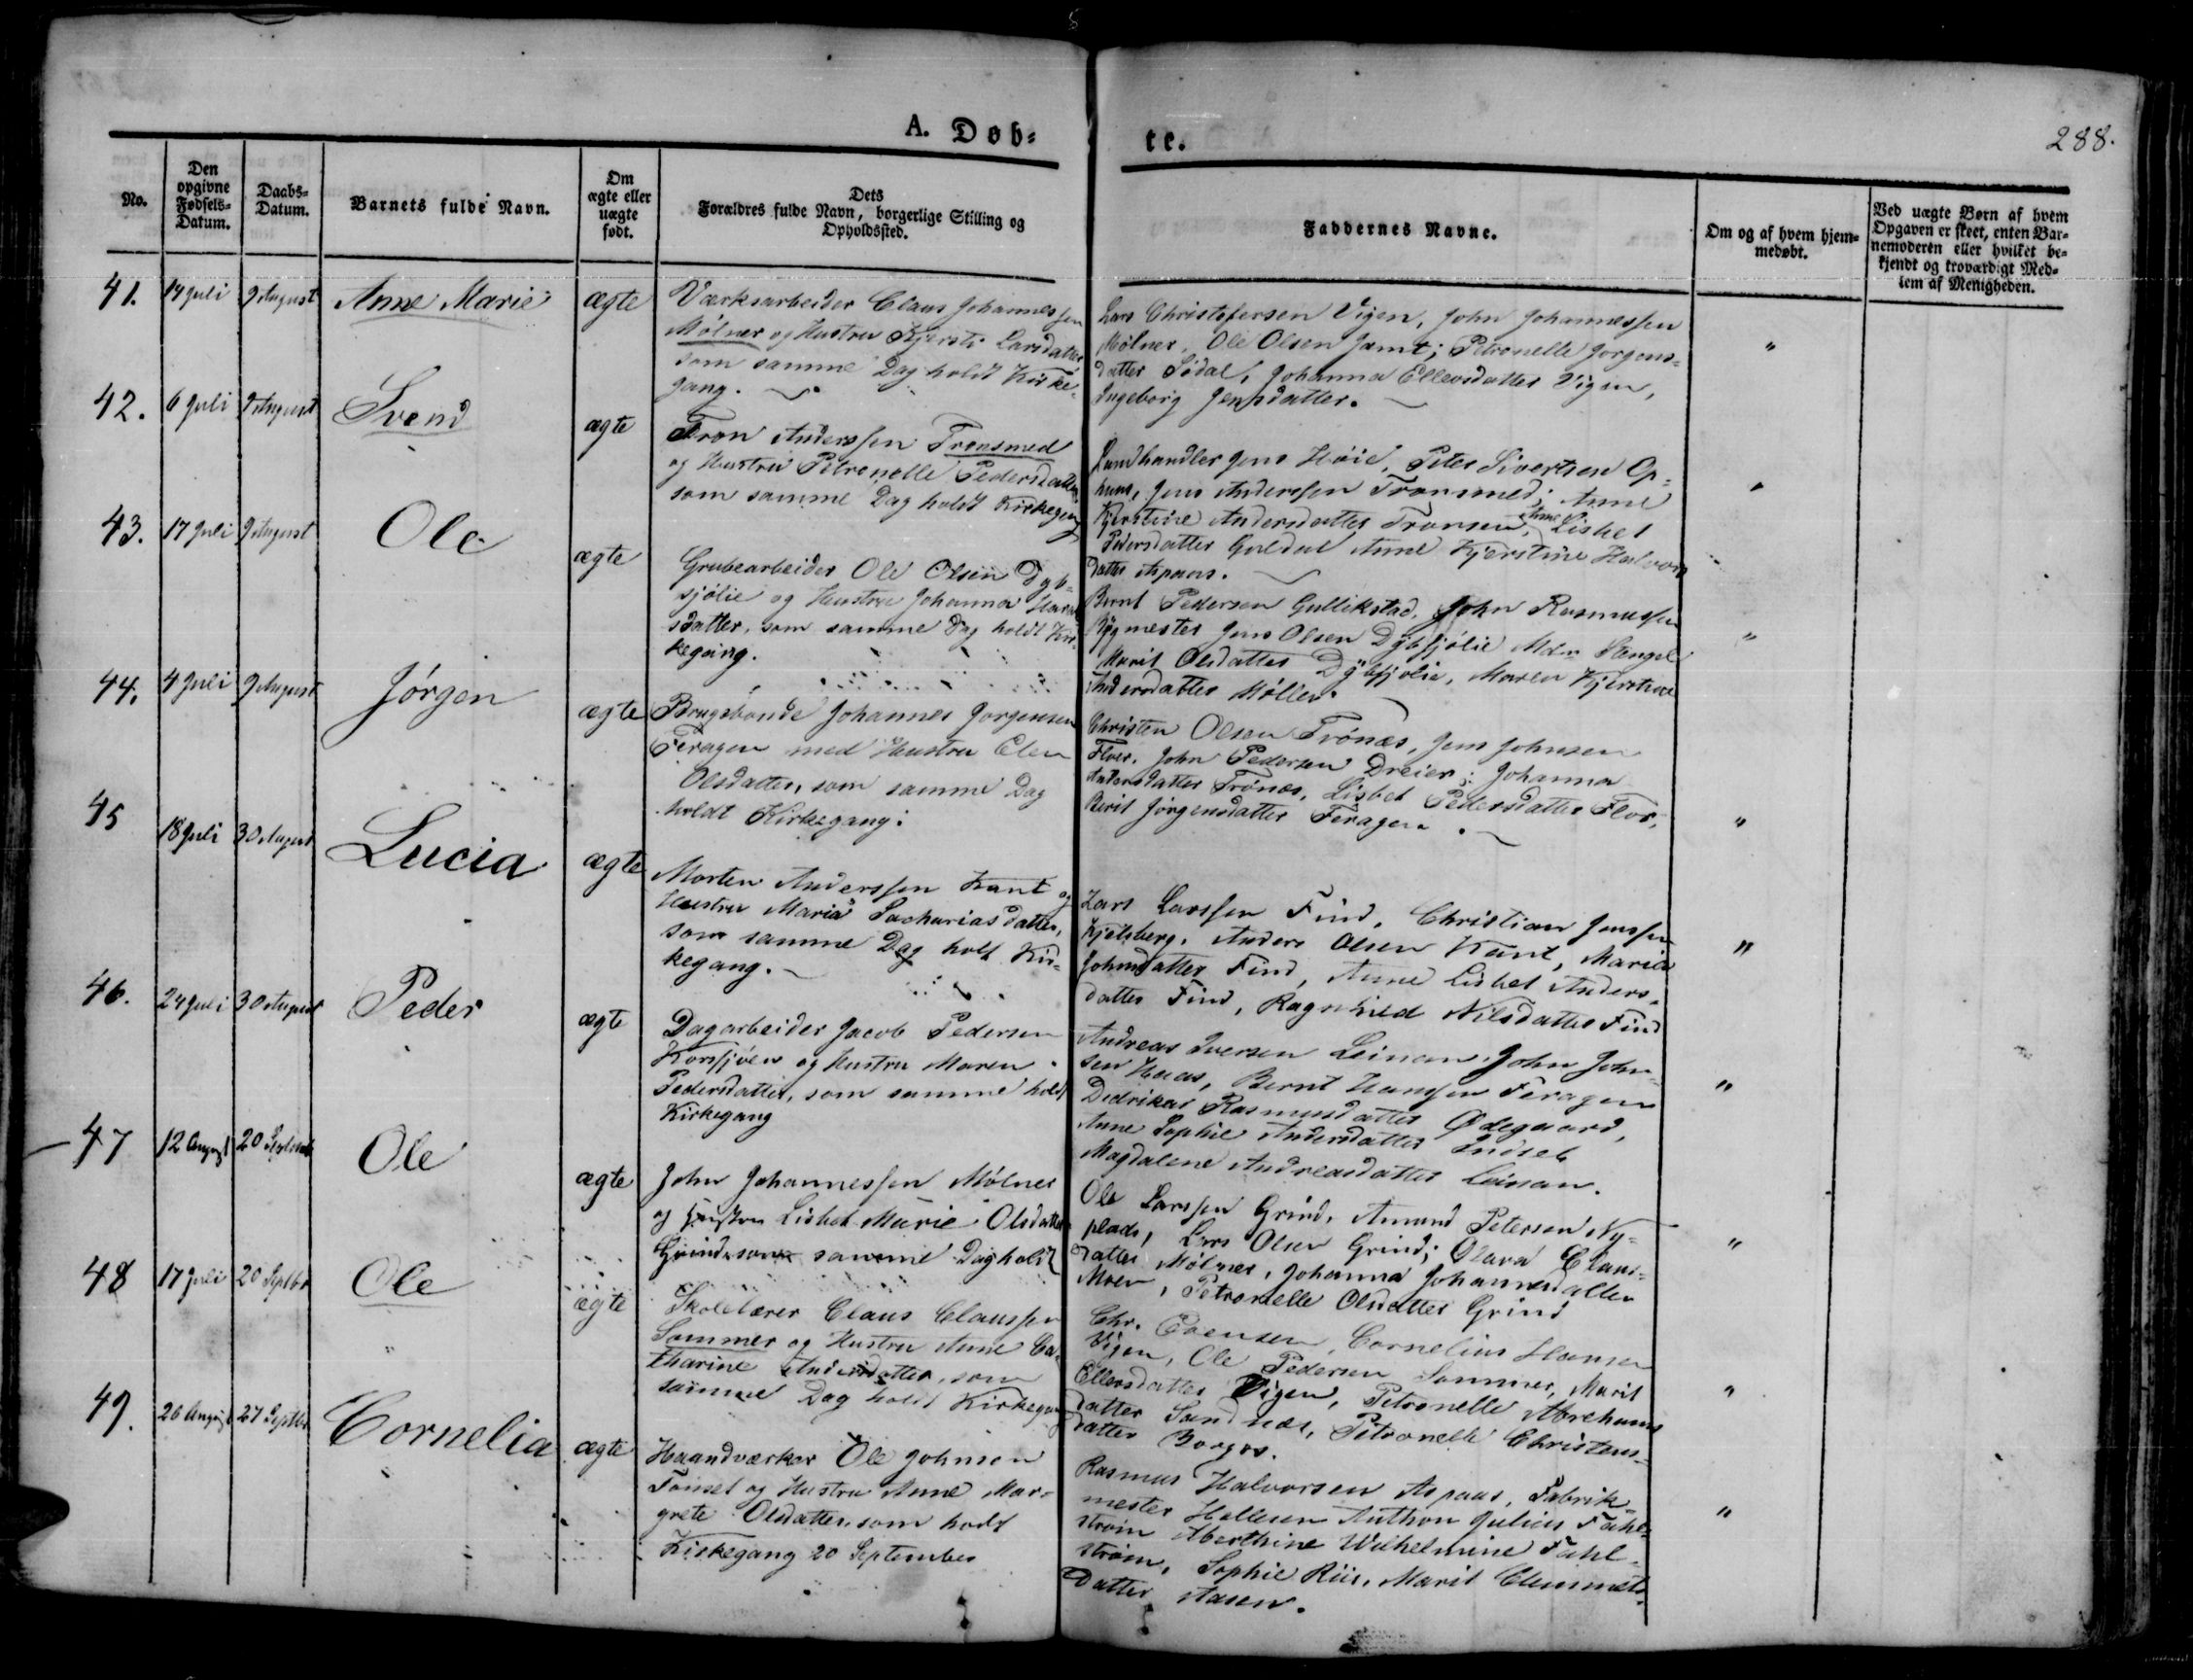 A. Døb-
te.
288.
No.
Den opgivne Fødsels-Datum.
Daabs-Datum.
Barnets fulde Navn.
Om ægte eller uægte født.
Dets Forældres fulde Navn, borgerlige Stilling og Opholdssted.
Faddernes Navne.
Om og af hvem hjem-medøbt.
Ved uægte Børn af hvem Opgaven er skeet, enten Bar-nemoderen eller hvilket be-kjendt og troværdigt Med-lem af Menigheden.
41. 14 Juli 9 August Anne Marie ægte
Værksarbeider Claus Johannessen
Mølner og Hustru Kjersti Larsdatter
som samme Dag holdt Kirke-
gang.
Lars Christofersen Vigen, John Johannessen
Mølner, Ole Olsen Jamt; Petronelle Jørgens-
datter Sødal, Johanna Ellevsdatter Vigen,
Ingeborg Jensdatter.
"
42. 6 Juli 9 August Svend ægte
Tron Anderssen Tronsmed
og Hustru Petronelle Pedersdatter
som samme Dag holdt Kirkegang
Landhandler Jens Høie, Peter Sivertsen Op-
huus, Jens Anderssen Tronsmed; Anne
Kjerstine Andersdatter Tronsen, Anne Lisbet
Pedersdatter Guldal Anne Kjerstine Halvors
datter Aspaas.
"
43. 17 Juli 9 August Ole ægte
Grubearbeider Ole Olsen Dyb-
sjølie og Hustru Johanna
sdatter, som samme Dag holdt Kir-
kegang.
Bernt Pedersen Gullikstad, John Rasmussen
Jens Olsen Dybsjølie Mdm Stengel
Marit Olsdatter Dybsjølie, Maren Kjerstine
Andersdatter Møller.
"
44. 4 Juli 9 August Jørgen ægte
Brugsbonde Johannes Jørgensen
Feragen med Hustru Elen
Olsdatter, som samme Dag
holdt Kirkegang.
Christen Olsen Trønæs, Jens Johnsen
Floer, John Pedersen Dreier; Johanna
Andersdatter Trønæs, Lisbet Pedersdatter Floer,
Berit Jørgensdatter Feragen.
"
45 18 Juli 30 August Lucia ægte
Morten Anderssen Kant og
Hustru Maria Sachariasdatter,
som samme Dag holdt Kir-
kegang.
Lars Larssen Find, Christian Jenssen
Kjelsberg, Anders Olsen Kant, Maria
Johnsdatter Find, Anne Lisbet Anders-
datter Find, Ragnhild Nilsdatter Find
"
46. 24 Juli 30 August Peder ægte
Dagarbeider Jacob Pedersen
Korssjøen og Hustru Maren
Pedersdatter, som samme holdt
Kirkegang
Andreas Iversen Leinan, John John-
sen Haas, Bernt Hanssen Feragen
Dedrikas Rasmusdatter Ødegaard,
Anne Sophie Andersdatter Indset
Magdalene Andreasdatter Leinan.
"
47 12 August 20 Septemb Ole ægte
John Johannessen Mølner
og Hustru Lisbet Marie Olsdatter
Grind som samme Dag holdt
Ole Larssen Grind, Amund Petersen Ny-
plads, Lars Olsen Grind; Olava Claus-
datter Mølner, Johanna Johannesdatter
Moen, Petronelle Olsdatter Grind
"
48 17 Juli 20 Septbr Ole ægte
Skolelærer Claus Claussen
Sommer og Hustru Anne Ca-
tharine Andersdatter, som
samme Dag holdt Kirkegang
Chr. Evensen, Cornelius Hansen
Vigen, Ole Pedersen Sommer, Marit
Ellevsdatter Vigen, Petronelle Abrahams
datter Sandnæs, Petronelle Christens-
datter Borgos.
"
49. 26 August 27 Septbr Cornelia ægte
Haandværker Ole Johnsen
Tønset og Hustru Anne Mar-
grete Olsdatter, som holdt
Kirkegang 20 September
Rasmus Halvorsen Aspaas, Fabrik-
mester Hollesen Anthon Julius Fahl-
strøm Aberthine Wilhelmine Fahl-
strøm, Sophie Riis, Marit Clemmets-
datter Aasen.
"